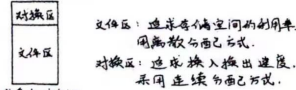 对换区
文件区
文件区：追求存储空间的利用率.
用离散分配方式.
对换区：追求换入换出速度.
采用连续分配方式.